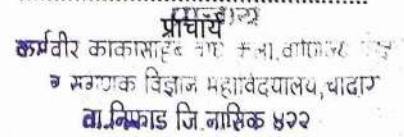 प्राचार्य
कर्मवीर काकासाहेब वाघ कला, वाणिज्य
व संगणक विज्ञान महाविदयालय, चादोरी
ता.निफाड जि.नासिक ४२२